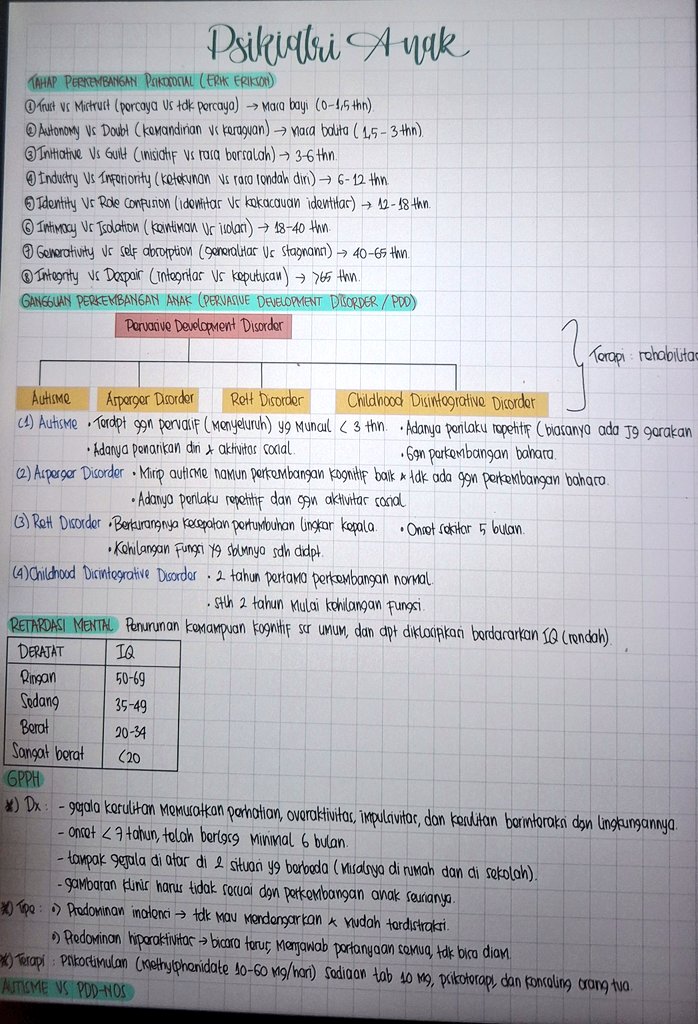 Psikiatri Anak
TAHAP PERKEMBANGAN PSIKOSOSIAL (ERIK ERIKSON)
① Trust vs Mistrust (percaya vs tdk percaya) → masa bayi (0-1,5 thn).
② Autonomy Vs Doubt (kemandirian vs keraguan) → masa balita (1,5-3 thn).
③ Initiative Vs Guilt (inisiatif vs rasa bersalah) → 3-6 thn.
④ Industry Vs Inferiority (ketekunan vs rasa rendah diri) → 6-12 thn.
⑤ Identity Vs Role Confusion (identitas vs kekacauan identitas) → 12-18 thn.
⑥ Intimacy Vs Isolation (keintiman Vs isolasi) → 18-40 thn.
⑦ Generativity Vs self absorption (generalitas Vs stagnansi) → 40-65 thn.
⑧ Integrity Vs Despair (integritas Vs keputusan) → >65 thn.
GANGGUAN PERKEMBANGAN ANAK (PERVASIVE DEVELOPMENT DISORDER / PDD)
Pervasive Development Disorder
Terapi : rehabilitas
Autisme Asperger Disorder Rett Disorder Childhood Disintegrative Disorder
(1) Autisme • Terdpt ggn pervasif (menyeluruh) yg muncul < 3 thn. • Adanya perilaku repetitif (biasanya ada Jg gerakan
• Adanya penarikan diri & aktivitas social. • Ggn perkembangan bahasa.
(2) Asperger Disorder • Mirip autisme namun perkembangan kognitif baik & tdk ada ggn perkembangan bahasa.
• Adanya perilaku repetitif dan ggn aktivitas social
(3) Rett Disorder • Berkurangnya kecepatan pertumbuhan lingkar kepala. • Onset sekitar 5 bulan.
• Kehilangan Fungsi yg sblmnya sdh didpt.
(4) Childhood Disintegrative Disorder • 2 tahun pertama perkembangan normal.
• stlh 2 tahun mulai kehilangan fungsi.
RETARDASI MENTAL Penurunan kemampuan kognitif scr umum, dan dpt diklasipkasi berdasarkan IQ (rendah).
DERAJAT IQ
Ringan 50-69
Sedang 35-49
Berat 20-34
Sangat berat <20
GPPH
*) Dx : - gejala kesulitan memusatkan perhatian, overaktivitas, impulsivitas, dan kesulitan berinteraksi dgn lingkungannya.
- onset < 7 tahun, telah berlgsg minimal 6 bulan.
- tampak gejala di atas di 2 situasi yg berbeda (misalnya di rumah dan di sekolah).
- gambaran klinis harus tidak sesuai dgn perkembangan anak seusianya.
*) Tipe : •) Predominan inatensi → tdk mau mendengarkan & mudah terdistraksi.
•) Predominan hiperaktivitas → bicara terus, menjawab pertanyaan semua, tdk bisa diam.
*) Terapi : Psikostimulan (Methylphenidate 10-60 mg/hari) sediaan tab 10 mg, psikoterapi, dan konseling orang tua.
AUTISME VS PDD-NOS